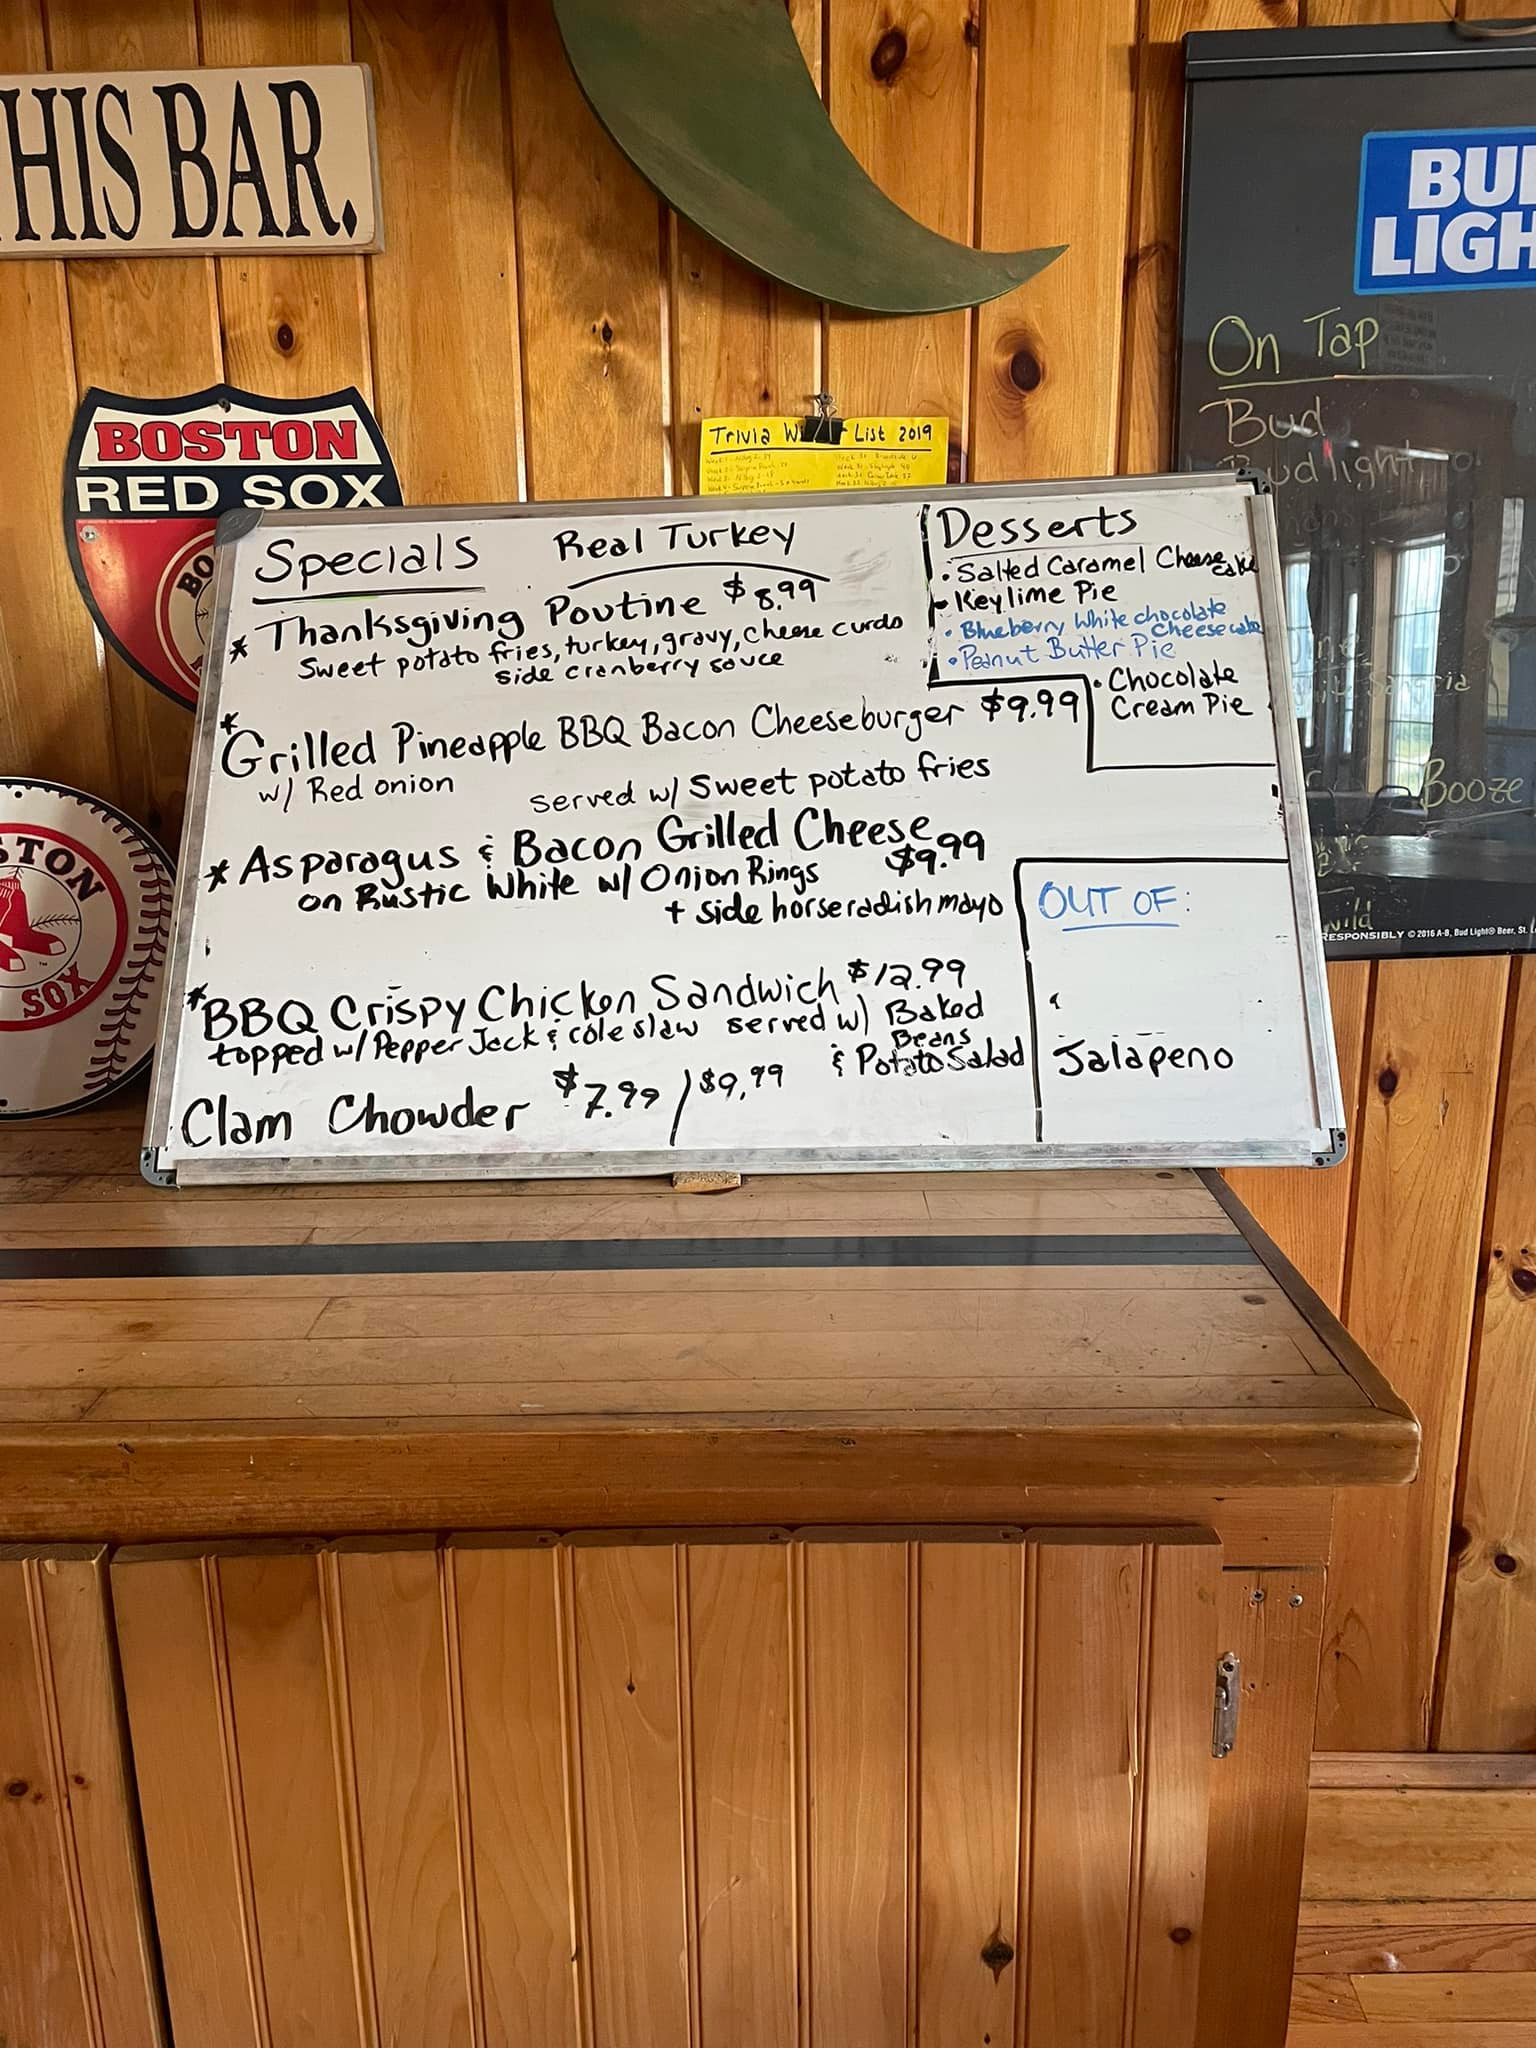 HIS BAR.
BOSTON
RED SOX
STON
SOX
Trivia List 2019
Specials Real Turkey
* Thanksgiving Poutine $8.99
Sweet potato fries, turkey, gravy, cheese curds
side cranberry sauce
* Grilled Pineapple BBQ Bacon Cheeseburger $9.99
w/ Red onion served w/ Sweet potato fries
* Asparagus & Bacon Grilled Cheese
on Rustic White w/ Onion Rings $9.99
+ side horseradish mayo
* BBQ Crispy Chicken Sandwich $12.99
topped w/ Pepper Jack & coleslaw served w/ Baked
Beans
& Potato Salad
Clam Chowder $7.99 / $9.99
Desserts
• Salted Caramel Cheese
cake
• Keylime Pie
• Blueberry White chocolate
Cheesecake
• Peanut Butter Pie
• Chocolate
Cream Pie
OUT OF:
Jalapeno
BUD
LIGH
On Tap
Bud
Budlight
Booze
RESPONSIBLY © 2016 A-B, Bud Light® Beer, St. L